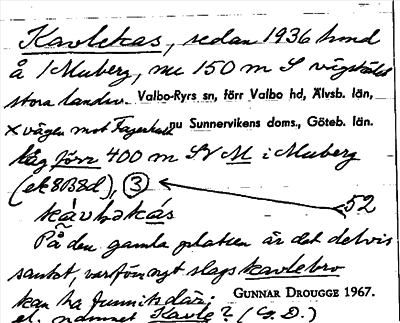 Kavlekas, sedan 1936 hmd
å 1 Muberg, nu 150 m S vägskälet
stora landsv. Valbo-Ryrs sn, förr Valbo hd, Älvsb. län,
x vägen mot nu Sunnervikens doms., Göteb. län.
låg förr 400 m SV M i Muberg
(ek 8B8d), 3
52
På den gamla platsen är det delvis
sankt, varför ngt slags kavlebro
kan ha funnits där;
GUNNAR DROUGGE 1967.
el. namnet Kavle? (G. D.)